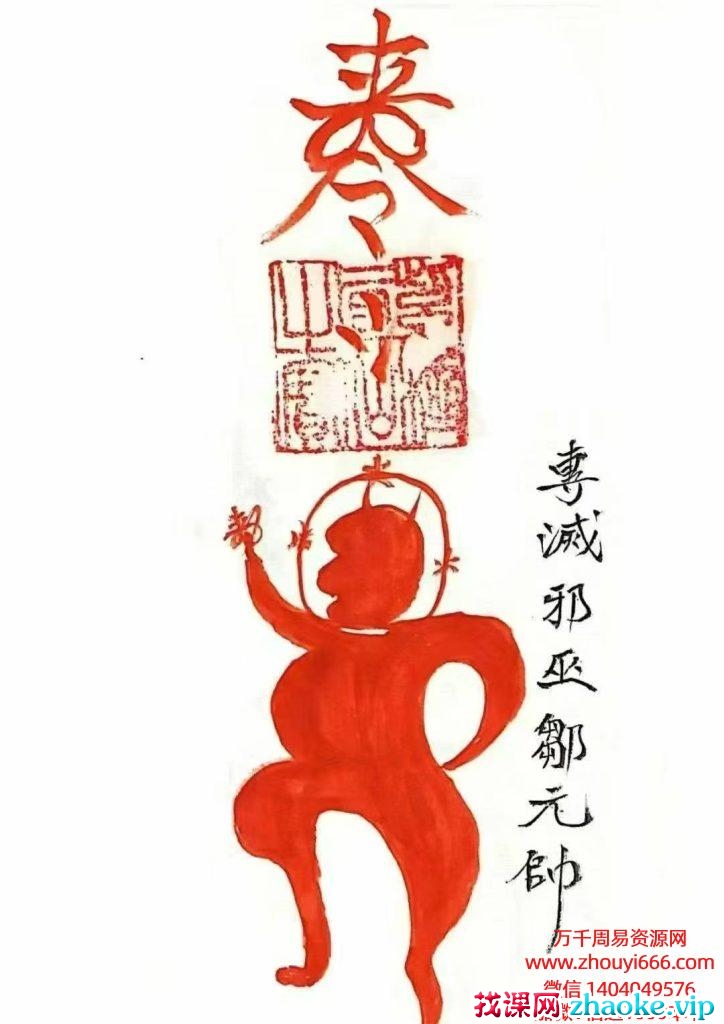 奉
令
專滅邪巫鄒元帥
万千周易资源网
www.zhouyi666.com
微信 1404049576
找课网zhaoke.vip